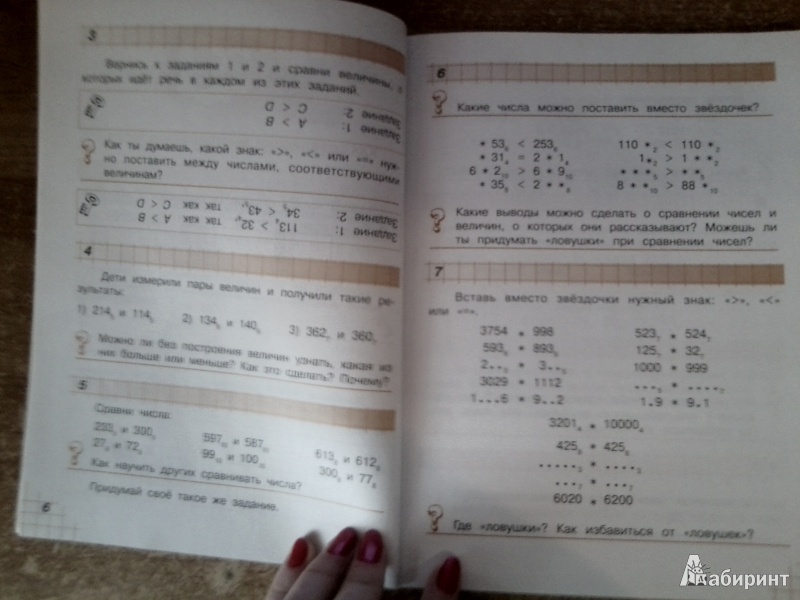 3
Вернись к заданиям 1 и 2 и сравни величины, о
которых идёт речь в каждом из этих заданий.
Задание 1: A > B
Задание 2: C < D
Как ты думаешь, какой знак: «>», «<» или «=» нуж-
но поставить между числами, соответствующими
величинам?
Задание 1: так как A > B
Задание 2: так как C < D
4
Дети измерили пары величин и получили такие ре-
зультаты:
1) 214₅ и 114₅ 2) 134₅ и 140₅ 3) 362₇ и 360₇
Можно ли без построения величин узнать, какая из
них больше или меньше? Как это сделать? (Почему)?
5
Сравни числа:
597₁₀ и 587₁₀ 613₈ и 612₈
99₁₀ и 100₁₀ 300₈ и 77₈
Как научить других сравнивать числа?
Придумай своё такое же задание.
6
6
Какие числа можно поставить вместо звёздочек?
* 53₆ < 253₆ 110 *₂ < 110 *₂
* 31₄ = 2 * 1₄ 1 *₂ > 1 * *₂
6 * 2₁₀ > 6 * 9₁₀ * * *₅ > * *₅
* 35₈ < 2 * *₈ 8 * *₁₀ > 88 *₁₀
Какие выводы можно сделать о сравнении чисел и
величин, о которых они рассказывают? Можешь ли
ты придумать «ловушки» при сравнении чисел?
7
Вставь вместо звёздочки нужный знак: «>», «<»
или «=».
3754 * 998 523₇ * 524₇
125₇ * 32₇
1000 * 999
3029 * 1112
1...6 * 9..2 1.9 * 9.1
3201₄ * 10000₄
425₈ * 425₆
6020 * 6200
Где «ловушки»? Как избавиться от «ловушек»?
Лабиринт